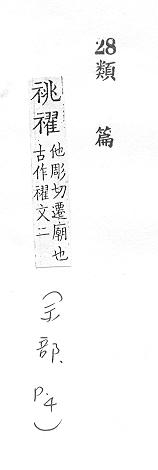 28 類篇
祧 襬
他彫切遷廟也
古作襬文二
(示部. P.4)